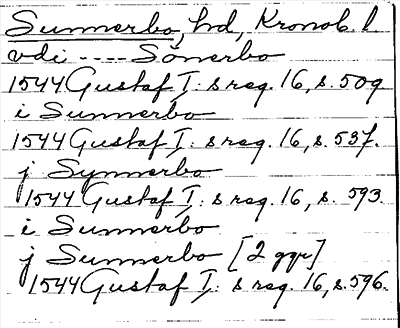 Sunnerbo, hd, Kronob. l
vdi ---- Sönerbo
1544 Gustaf I: s reg. 16, s. 509
i Sunnerbo
1544 Gustaf I: s reg. 16, s. 537.
j Synnerbo
1544 Gustaf I: s reg. 16, s. 593.
i Sunnerbo
j Sunnerbo [2 ggr]
1544 Gustaf I: s reg. 16, s. 596.